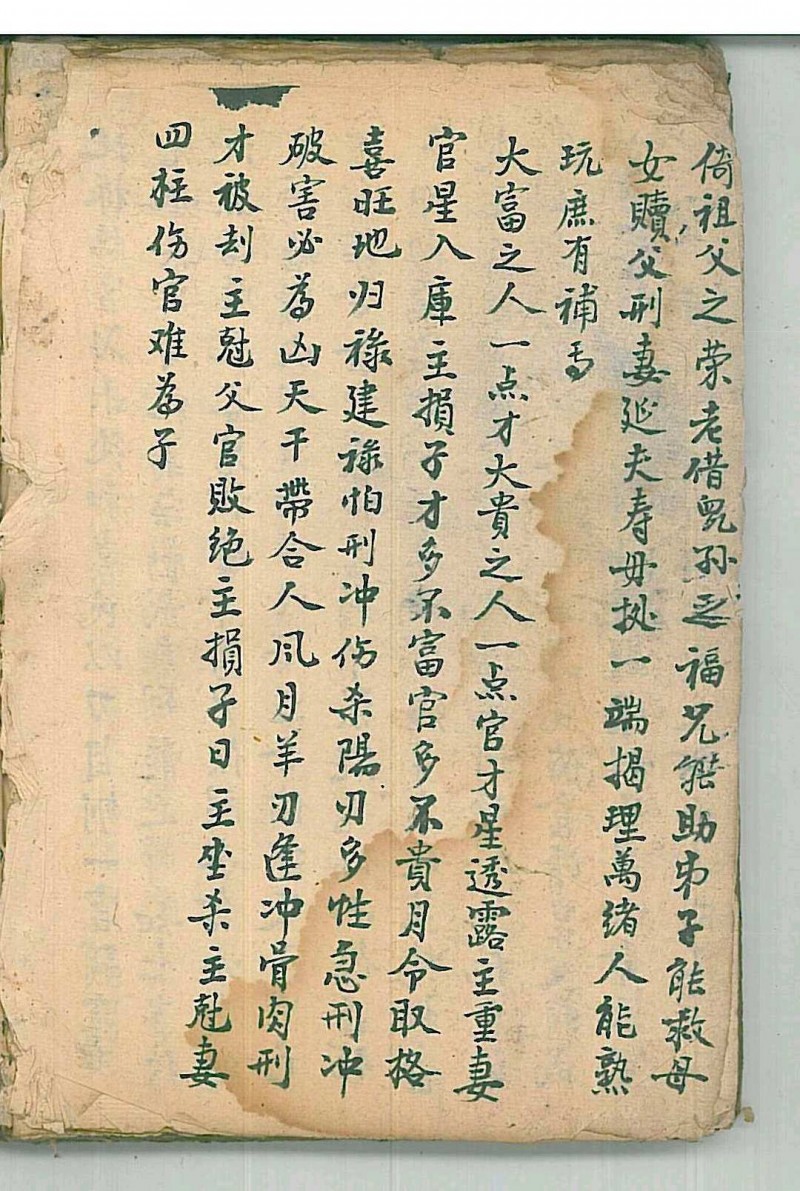 倚祖父之荣老借児孙之福兄能助弟子能救母
女贖父刑妻延夫寿毋扵一端揭理萬绪人能熟
玩庶有補焉
大富之人一点才大貴之人一点官才星透露主重妻
官星入庫主損子才多不富官多不貴月令取格
喜旺地归禄建禄怕刑冲伤杀陽刃多性急刑冲
破害必為凶天干帶合人风月羊刃逢冲骨肉刑
才被刦主尅父官败绝主損子日主坐杀主尅妻
四柱伤官难為子